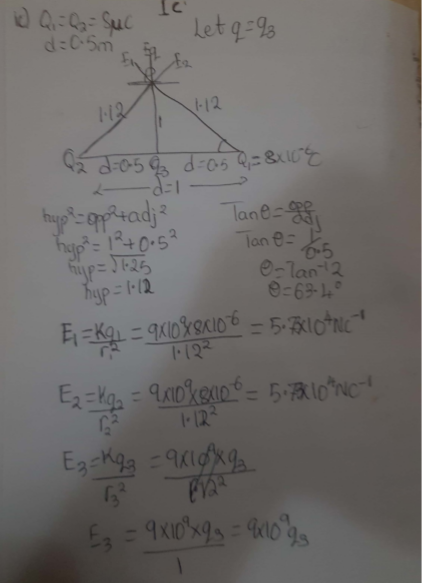 1c
1c) Q₁=Q₂=8μC
d=0.5m
Let q=q₃
E₁ Eq E₂
1.12 1 1.12
Q₂ d=0.5 q₃ d=0.5 Q₁=8×10⁻⁶C
d=1
hyp²=opp²+adj²
hyp²=1²+0.5²
hyp=√1.25
hyp=1.12
Tanθ=opp/adj
Tanθ=1/0.5
θ=Tan⁻¹2
θ=63.4°
E₁=Kq₁/r₁²=9×10⁹×8×10⁻⁶/1.12²=5.73×10⁴NC⁻¹
E₂=Kq₂/r₂²=9×10⁹×8×10⁻⁶/1.12²=5.73×10⁴NC⁻¹
E₃=Kq₃/r₃²=9×10⁹×q₃
E₃=9×10⁹×q₃/1=9×10⁹q₃